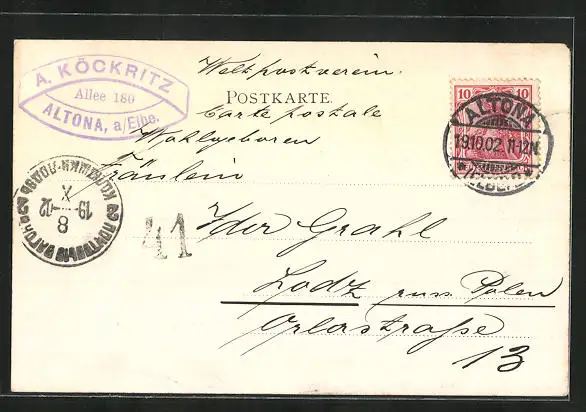 A. KÖCKRITZ
Allee 180
ALTONA, a/Elbe.
Weltpostverein.
POSTKARTE.
Carte postale
Wohlgeboren
Fräulein
Ida Grahl
Lodz russ. Polen
Orlastraße
13
10 10
ALTONA
19.10.02 11-12N.
* (ELBE)
41
19 X 02
8